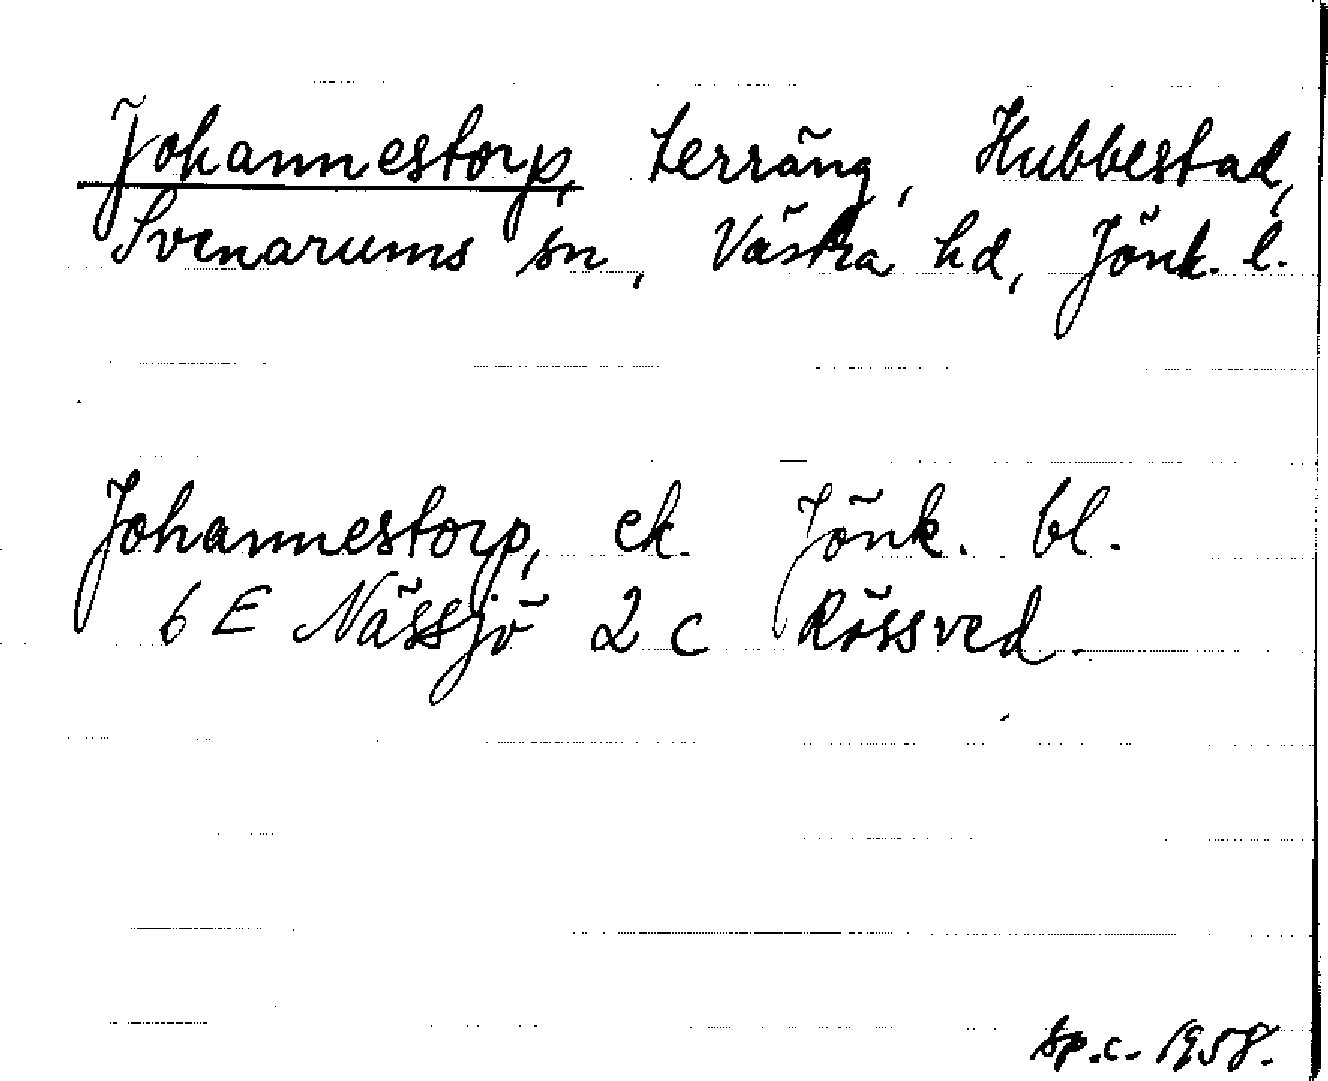 Johannestorp, terräng, Hubbestad,
Svenarums sn, Västra hd, Jönk. l.
Johannestorp, ek. Jönk. bl.
6 E Nässjö 2 c Rössved.
Sp.c. 1958.